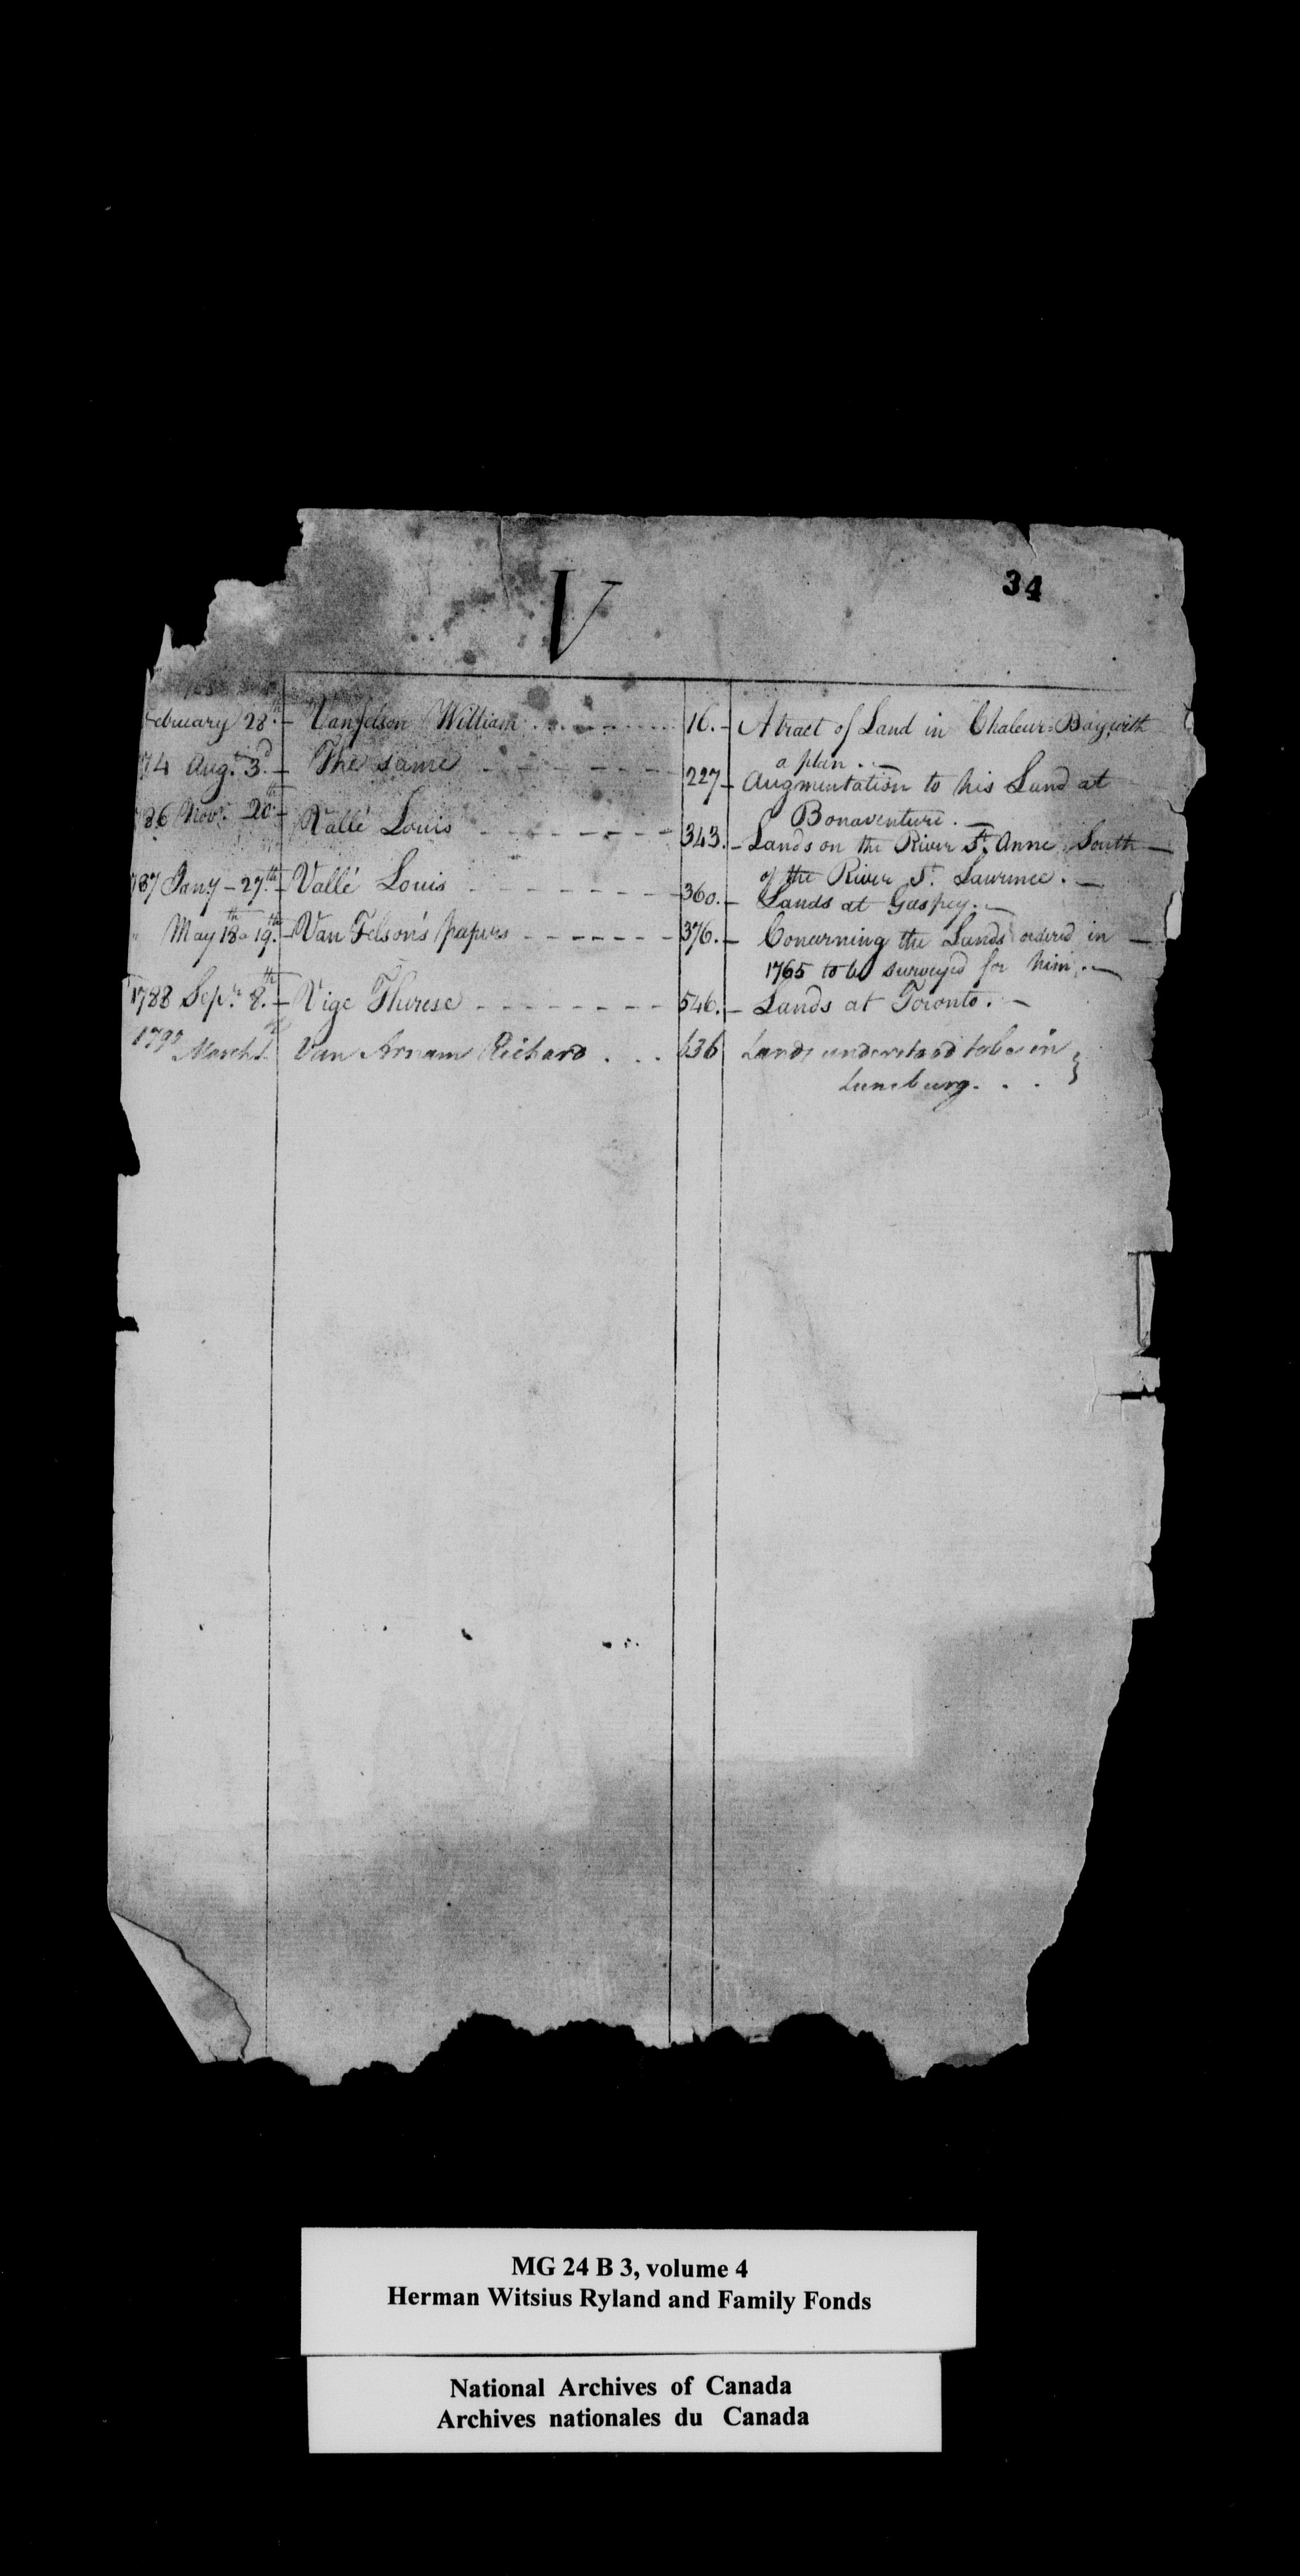 34
V
ebruary 28th - Vanfelson William . . . . . . . . 16. - A tract of Land in Chaleur=Bay, with
a plan. -
74 Augt. 3d. - The same - - - - - - 227 - Augmentation to his Land at
Bonaventure. -
86 Novr. 20th - Vallé Louis - - - - - - 343. - Lands on the River St. Anne South -
of the River St. Lawrence. -
787 Jany - 27th - Vallé Louis - - - - - - 360. - Lands at Gaspey. -
" May 18th a 19th. - Van Felson's papers - - - - - - 376. - Concerning the Lands ordered in -
1765 to be surveyed for him. -
1788 Sepr. 8.th - Vige Therese - - - - - - 546. - Lands at Toronto. -
1790 March 1. Van Arnam Richard . . . 636 Lands understood to be in }
Luneburg. . .
MG 24 B 3, volume 4
Herman Witsius Ryland and Family Fonds
National Archives of Canada
Archives nationales du Canada